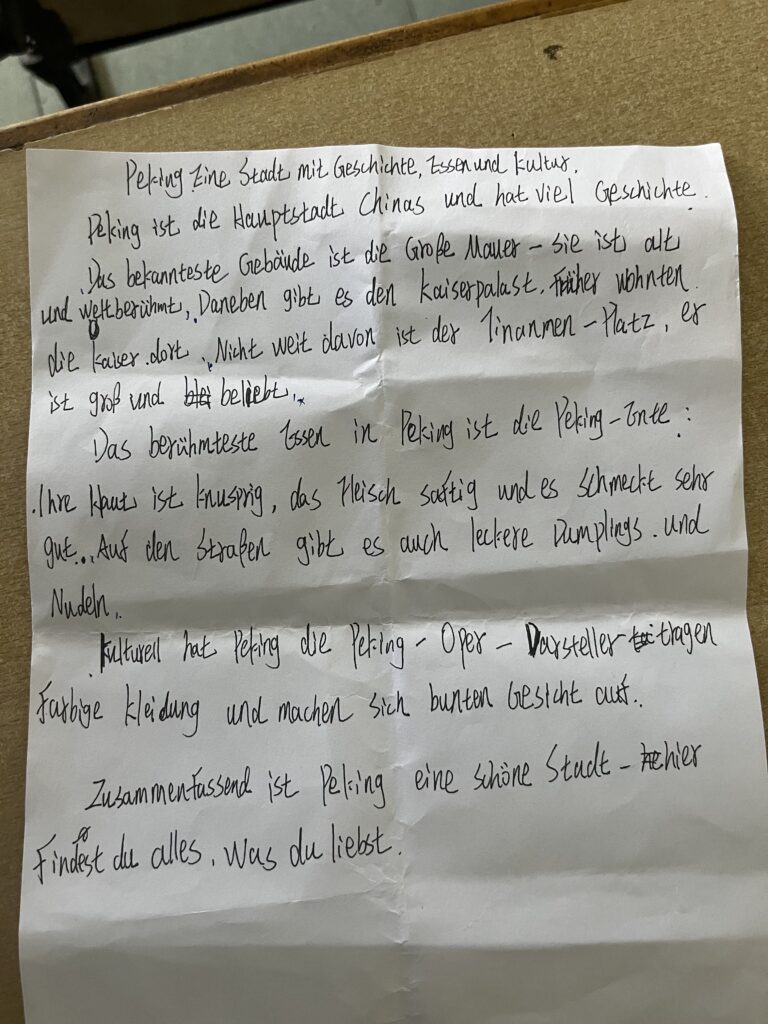 Peking Eine Stadt mit Geschichte, Essen und Kultur.
Peking ist die Hauptstadt Chinas und hat viel Geschichte.
Das bekannteste Gebäude ist die Große Mauer – sie ist alt
und weltberühmt, Daneben gibt es den Kaiserpalast. Früher wohnten
die Kaiser dort. Nicht weit davon ist der Tinanmen-Platz, er
ist groß und beliebt.
Das berühmteste Essen in Peking ist die Peking-Ente:
Ihre Haut ist knusprig, das Fleisch saftig und es schmeckt sehr
gut. Auf den Straßen gibt es auch leckere Dumplings und
Nudeln.
Kulturell hat Peking die Peking-Oper – Darsteller tragen
farbige Kleidung und machen sich bunten Gesicht auf.
Zusammenfassend ist Peking eine schöne Stadt – hier
findest du alles, was du liebst.